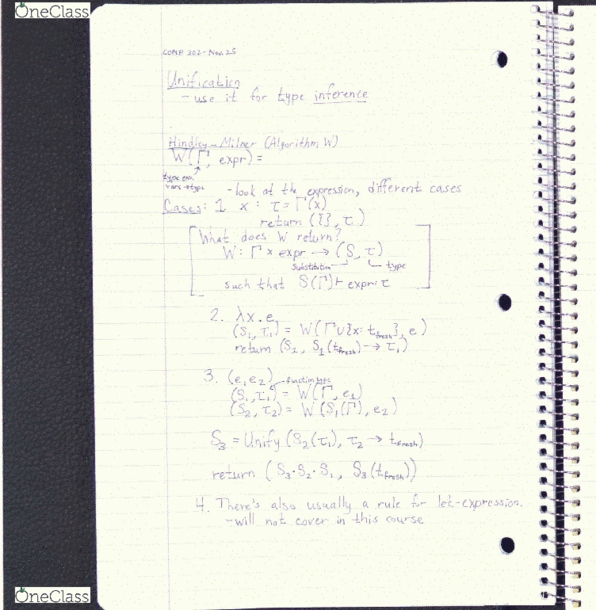 OneClass
COMP 302 - Nov. 25
Unification
- use it for type inference
Hindley - Milner (Algorithm W)
W(Γ, expr) =
type env.
vars → type
- look at the expression, different cases
Cases: 1. x : τ = Γ(x)
return ({}, τ)
What does W return?
W : Γ × expr → (S, τ)
Substitution type
such that S(Γ) ⊢ expr : τ
2. λx.e
(S₁, τ₁) = W(Γ ∪ {x: t_fresh}, e)
return (S₁, S₁(t_fresh) → τ₁)
3. (e₁ e₂)
function type
(S₁, τ₁) = W(Γ, e₁)
(S₂, τ₂) = W(S₁(Γ), e₂)
S₃ = Unify (S₂(τ₁), τ₂ → t_fresh)
return (S₃·S₂·S₁, S₃(t_fresh))
4. There's also usually a rule for let-expression.
- will not cover in this course
OneClass